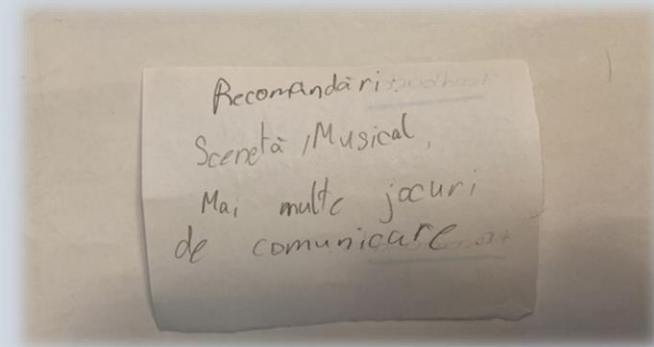 Recomandări:
Scenetă, Musical,
Mai multe jocuri
de comunicare